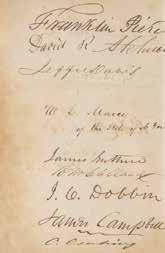 Franklin Pierce
David R Atchison
Jefferson Davis
W. L. Marcy
of the State of N. York
James Guthrie
R. McClelland
J. C. Dobbin
James Campbell
C. Cushing